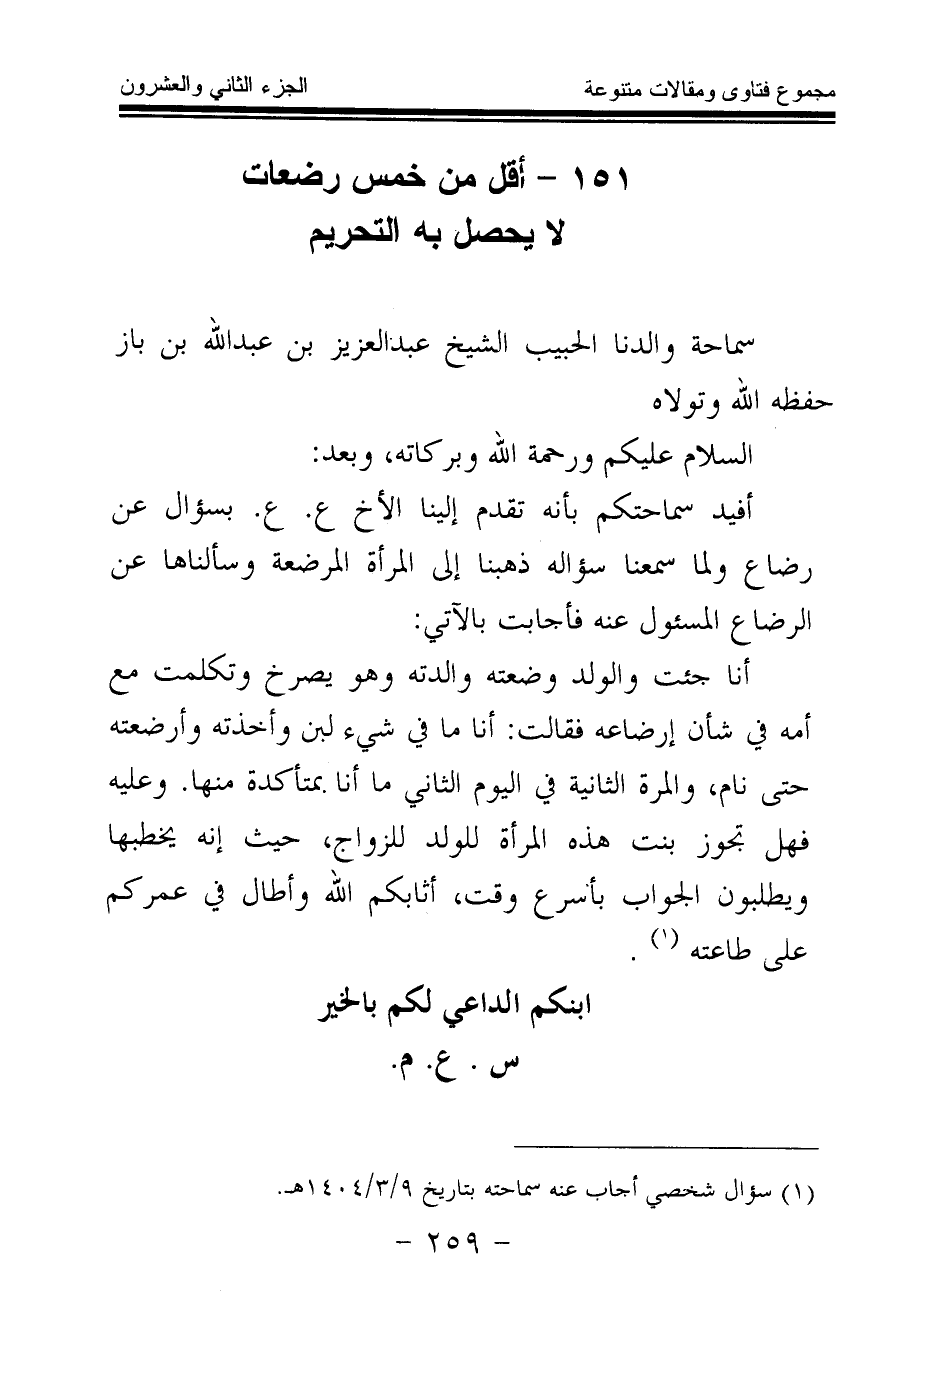 مجموع فتاوى ومقالات متنوعة
الجزء الثاني والعشرون
١٥١ - أقل من خمس رضعات
لا يحصل به التحريم
سماحة والدنا الحبيب الشيخ عبدالعزيز بن عبدالله بن باز
حفظه الله وتولاه
السلام عليكم ورحمة الله وبركاته، وبعد:
أفيد سماحتكم بأنه تقدم إلينا الأخ ع. ع. بسؤال عن
رضاع ولما سمعنا سؤاله ذهبنا إلى المرأة المرضعة وسألناها عن
الرضاع المسئول عنه فأجابت بالآتي:
أنا جئت والولد وضعته والدته وهو يصرخ وتكلمت مع
أمه في شأن إرضاعه فقالت: أنا ما في شيء لبن وأخذته وأرضعته
حتى نام، والمرة الثانية في اليوم الثاني ما أنا بمتأكدة منها. وعليه
فهل تجوز بنت هذه المرأة للولد للزواج، حيث إنه يخطبها
ويطلبون الجواب بأسرع وقت، أثابكم الله وأطال في عمركم
على طاعته (١) .
ابنكم الداعي لكم بالخير
س . ع. م.
(١) سؤال شخصي أجاب عنه سماحته بتاريخ ١٤٠٤/٣/٩هـ.
- ٢٥٩ -